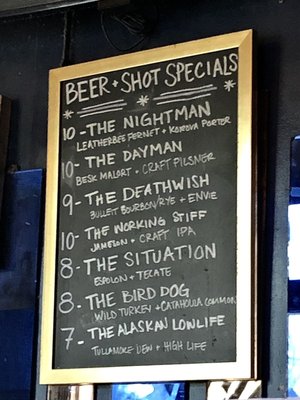 BEER + SHOT SPECIALS
10 - THE NIGHTMAN
LEATHERBEE FERNET + KOMOVA PORTER
10 - THE DAYMAN
BESK MALORT + CRAFT PILSNER
9 - THE DEATHWISH
BULLEIT BOURBON/RYE + ENVIE
10 - THE WORKING STIFF
JAMESON + CRAFT IPA
8 - THE SITUATION
ESPOLON + TECATE
8 - THE BIRD DOG
WILD TURKEY + CATAHOULA COMMON
7 - THE ALASKAN LOWLIFE
TULLAMORE DEW + HIGH LIFE